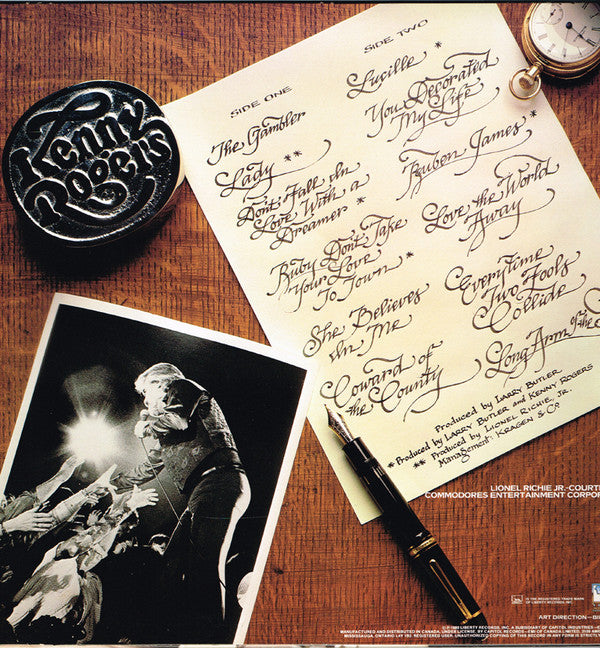 Kenny
Rogers
SIDE ONE
The Gambler
Lady **
Don't Fall In
Love With a
Dreamer *
Ruby Don't Take
Your Love
To Town *
She Believes
In Me
Coward of
the County
SIDE TWO
Lucille *
You Decorated
My Life
Reuben James *
Love the World
Away
Everytime
Two Fools
Collide
Long Arm of the
Produced by LARRY BUTLER
* Produced by LARRY BUTLER and KENNY ROGERS
** Produced by LIONEL RICHIE, JR.
Management: KRAGEN & CO
LIONEL RICHIE JR.-COURT
COMMODORES ENTERTAINMENT CORPOR
IS THE REGISTERED TRADE MARK
OF LIBERTY RECORDS, INC.
ART DIRECTION—BI
© ℗ 1980 LIBERTY RECORDS, INC. A SUBSIDIARY OF CAPITOL INDUSTRIES—E
MANUFACTURED AND DISTRIBUTED IN CANADA, UNDER LICENSE, BY CAPITOL RECORDS—EMI OF CANADA LIMITED, 3109 AM
MISSISSAUGA, ONTARIO L4V 1E9. UNAUTHORIZED COPYING OF THIS RECORD IN ANY FORM IS STRICTLY